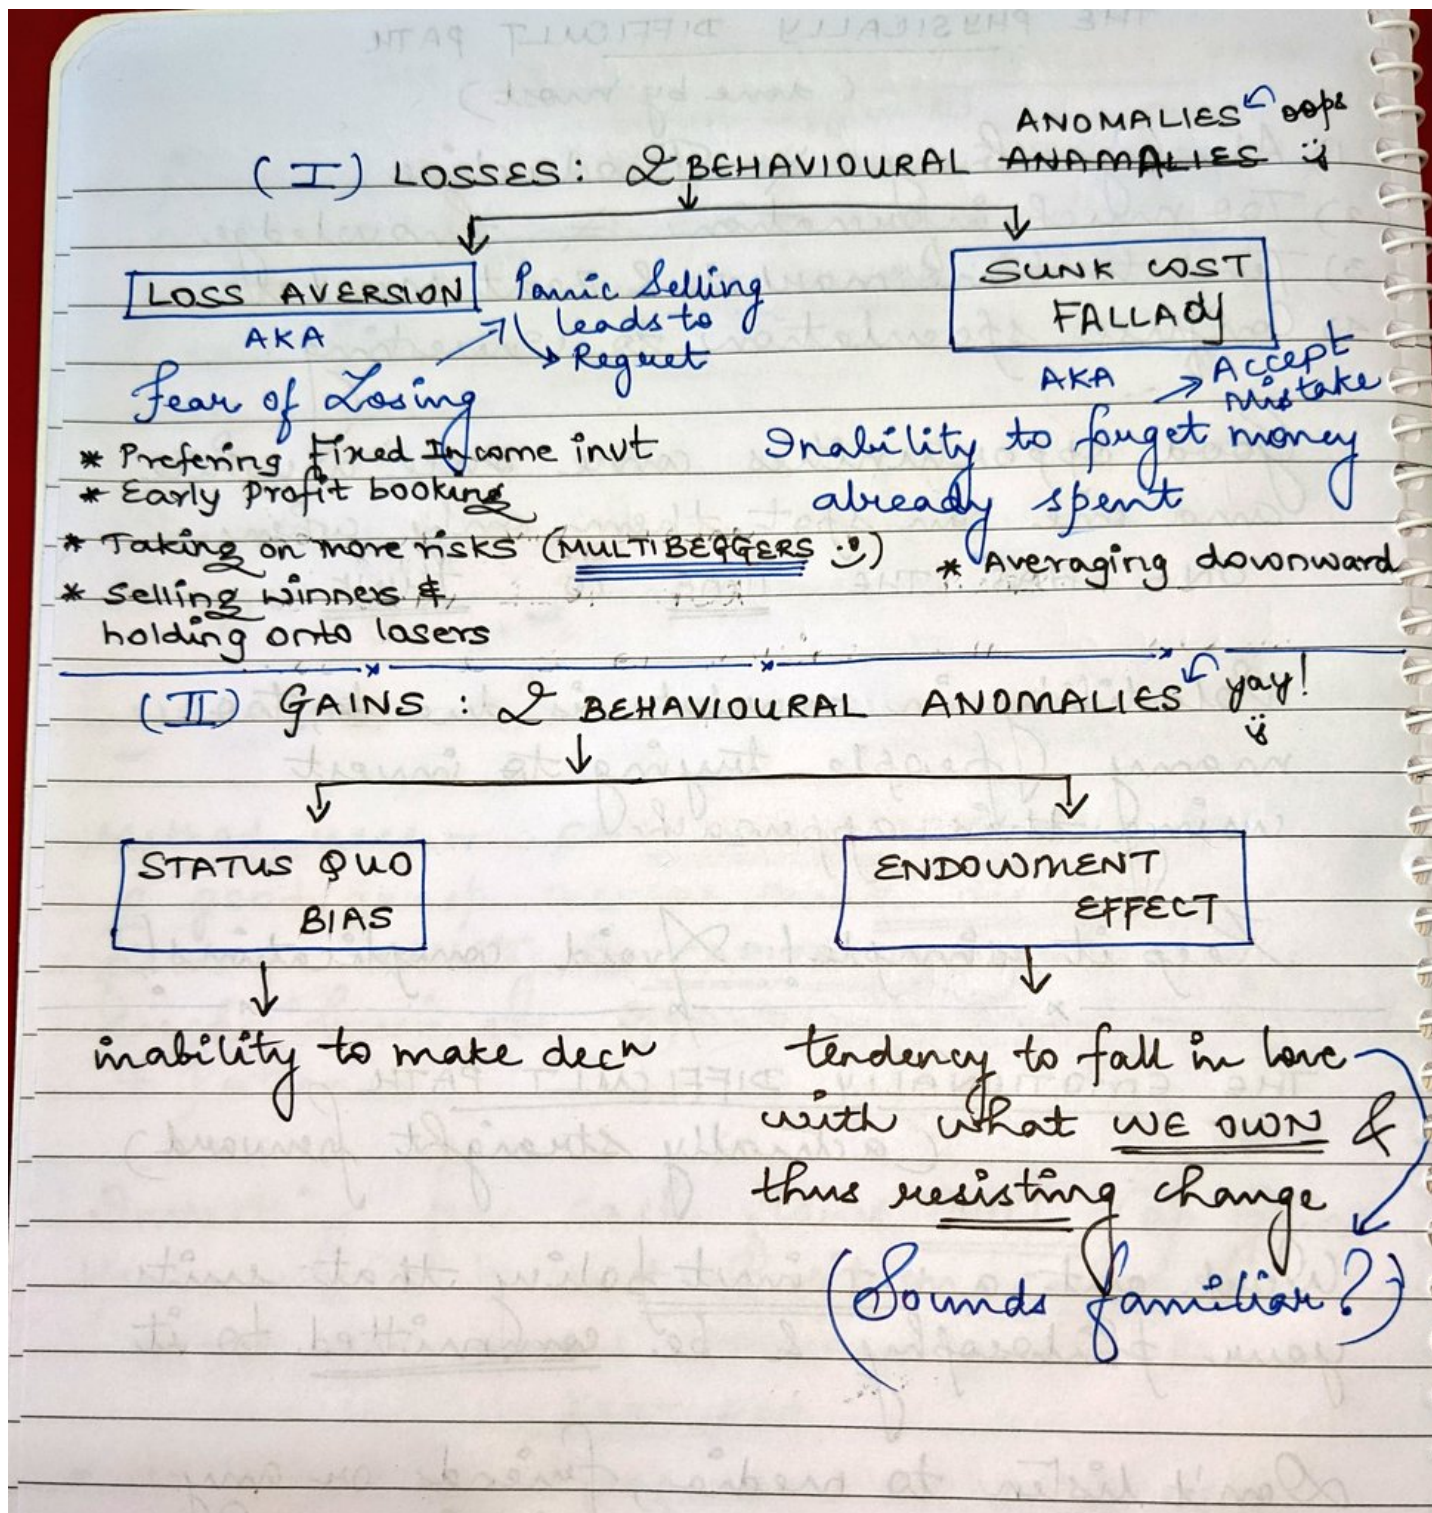 ANOMALIES oops
(I) LOSSES: 2 BEHAVIOURAL ANAMALIES
LOSS AVERSION
AKA
Fear of Losing
Panic Selling
leads to
Regret
* Prefering Fixed Income invt
* Early profit booking
* Taking on more risks (MULTIBEGGERS)
* Selling winners &
holding onto losers
SUNK COST
FALLACY
AKA
Accept
Mistake
Inability to forget money
already spent
* Averaging downward
(II) GAINS: 2 BEHAVIOURAL ANOMALIES yay!
STATUS QUO
BIAS
inability to make decn
ENDOWMENT
EFFECT
tendency to fall in love
with what WE OWN &
thus resisting change
(Sounds familiar?)